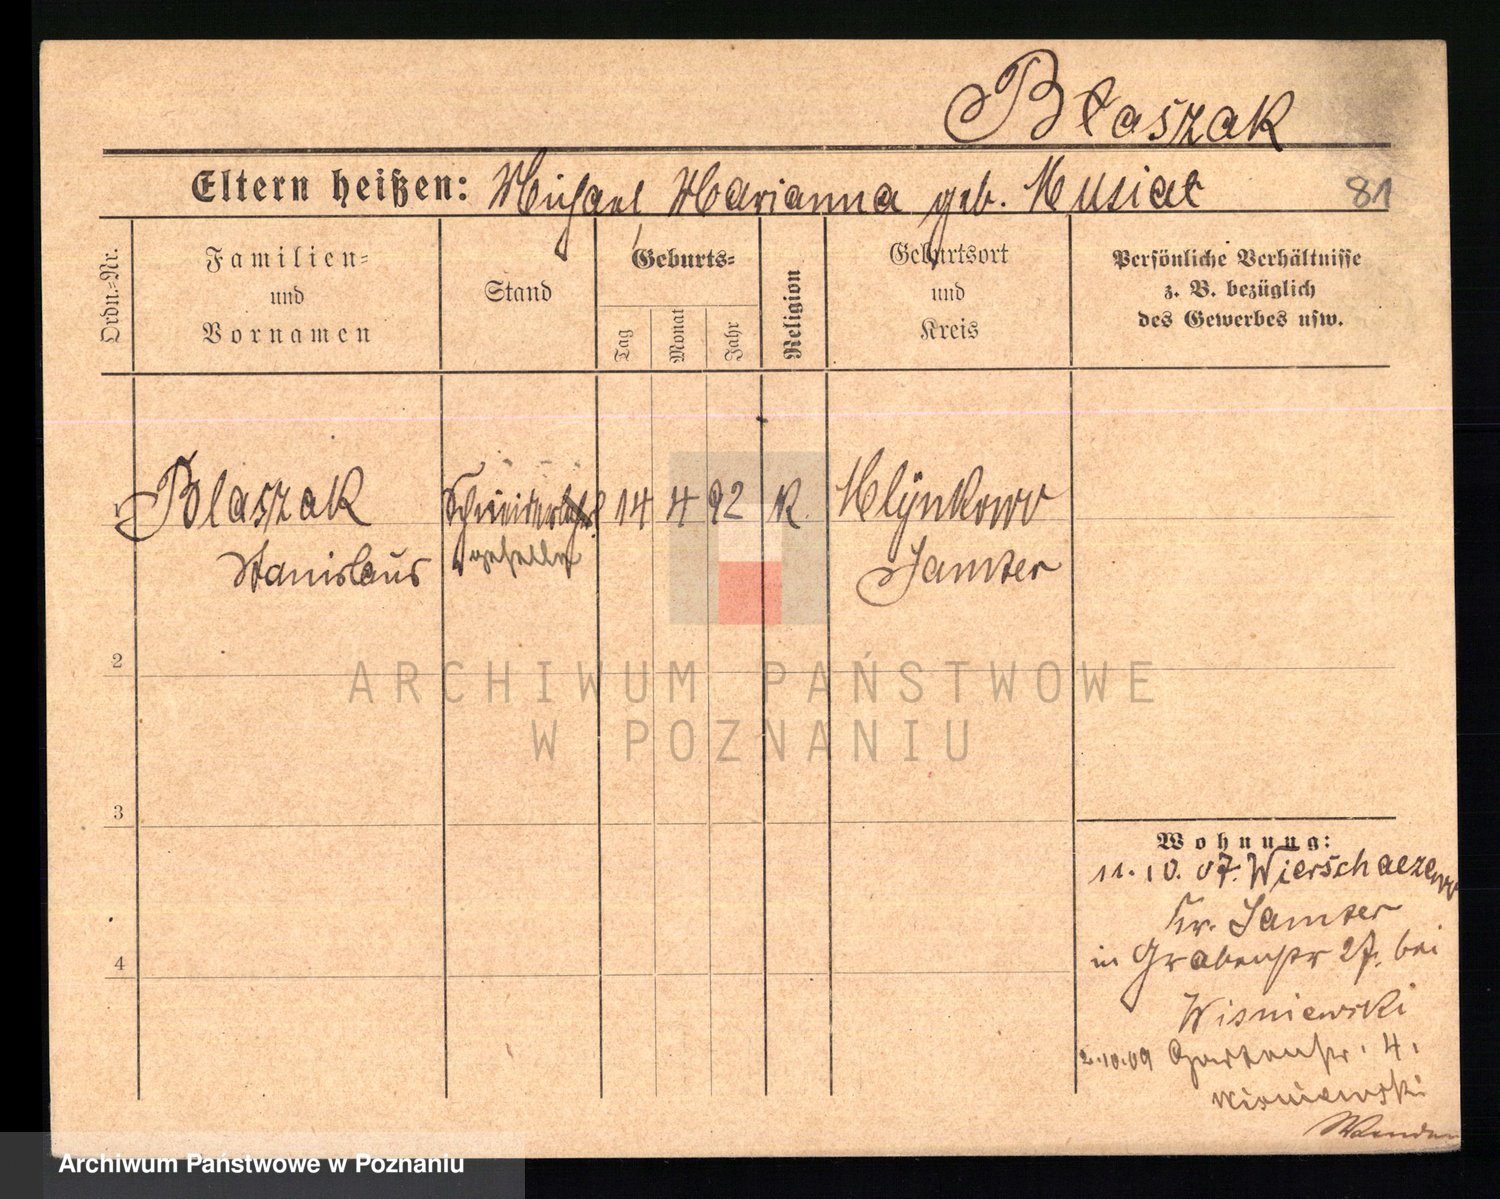 Błaszak
Eltern heißen: Michael Marianna geb. Musiał
81
Ordn.-Nr.
Familien-
und
Vornamen
Stand
Geburts-
Tag
Monat
Jahr
Religion
Geburtsort
und
Kreis
Persönliche Verhältnisse
z. B. bezüglich
des Gewerbes usw.
1 Blaszak Schneiderlehrl. 14 4 92 K. Mlynkowo
Stanislaus geselle Samter
2
3
4
Wohnung:
11. 10. 07. Wierschaczewo
Kr. Samter
in Grabenstr 27. bei
Wisniewski
2.10.09 Gartenstr. 4.
Wisniewski
Wenden
ARCHIWUM PAŃSTWOWE
W POZNANIU
Archiwum Państwowe w Poznaniu